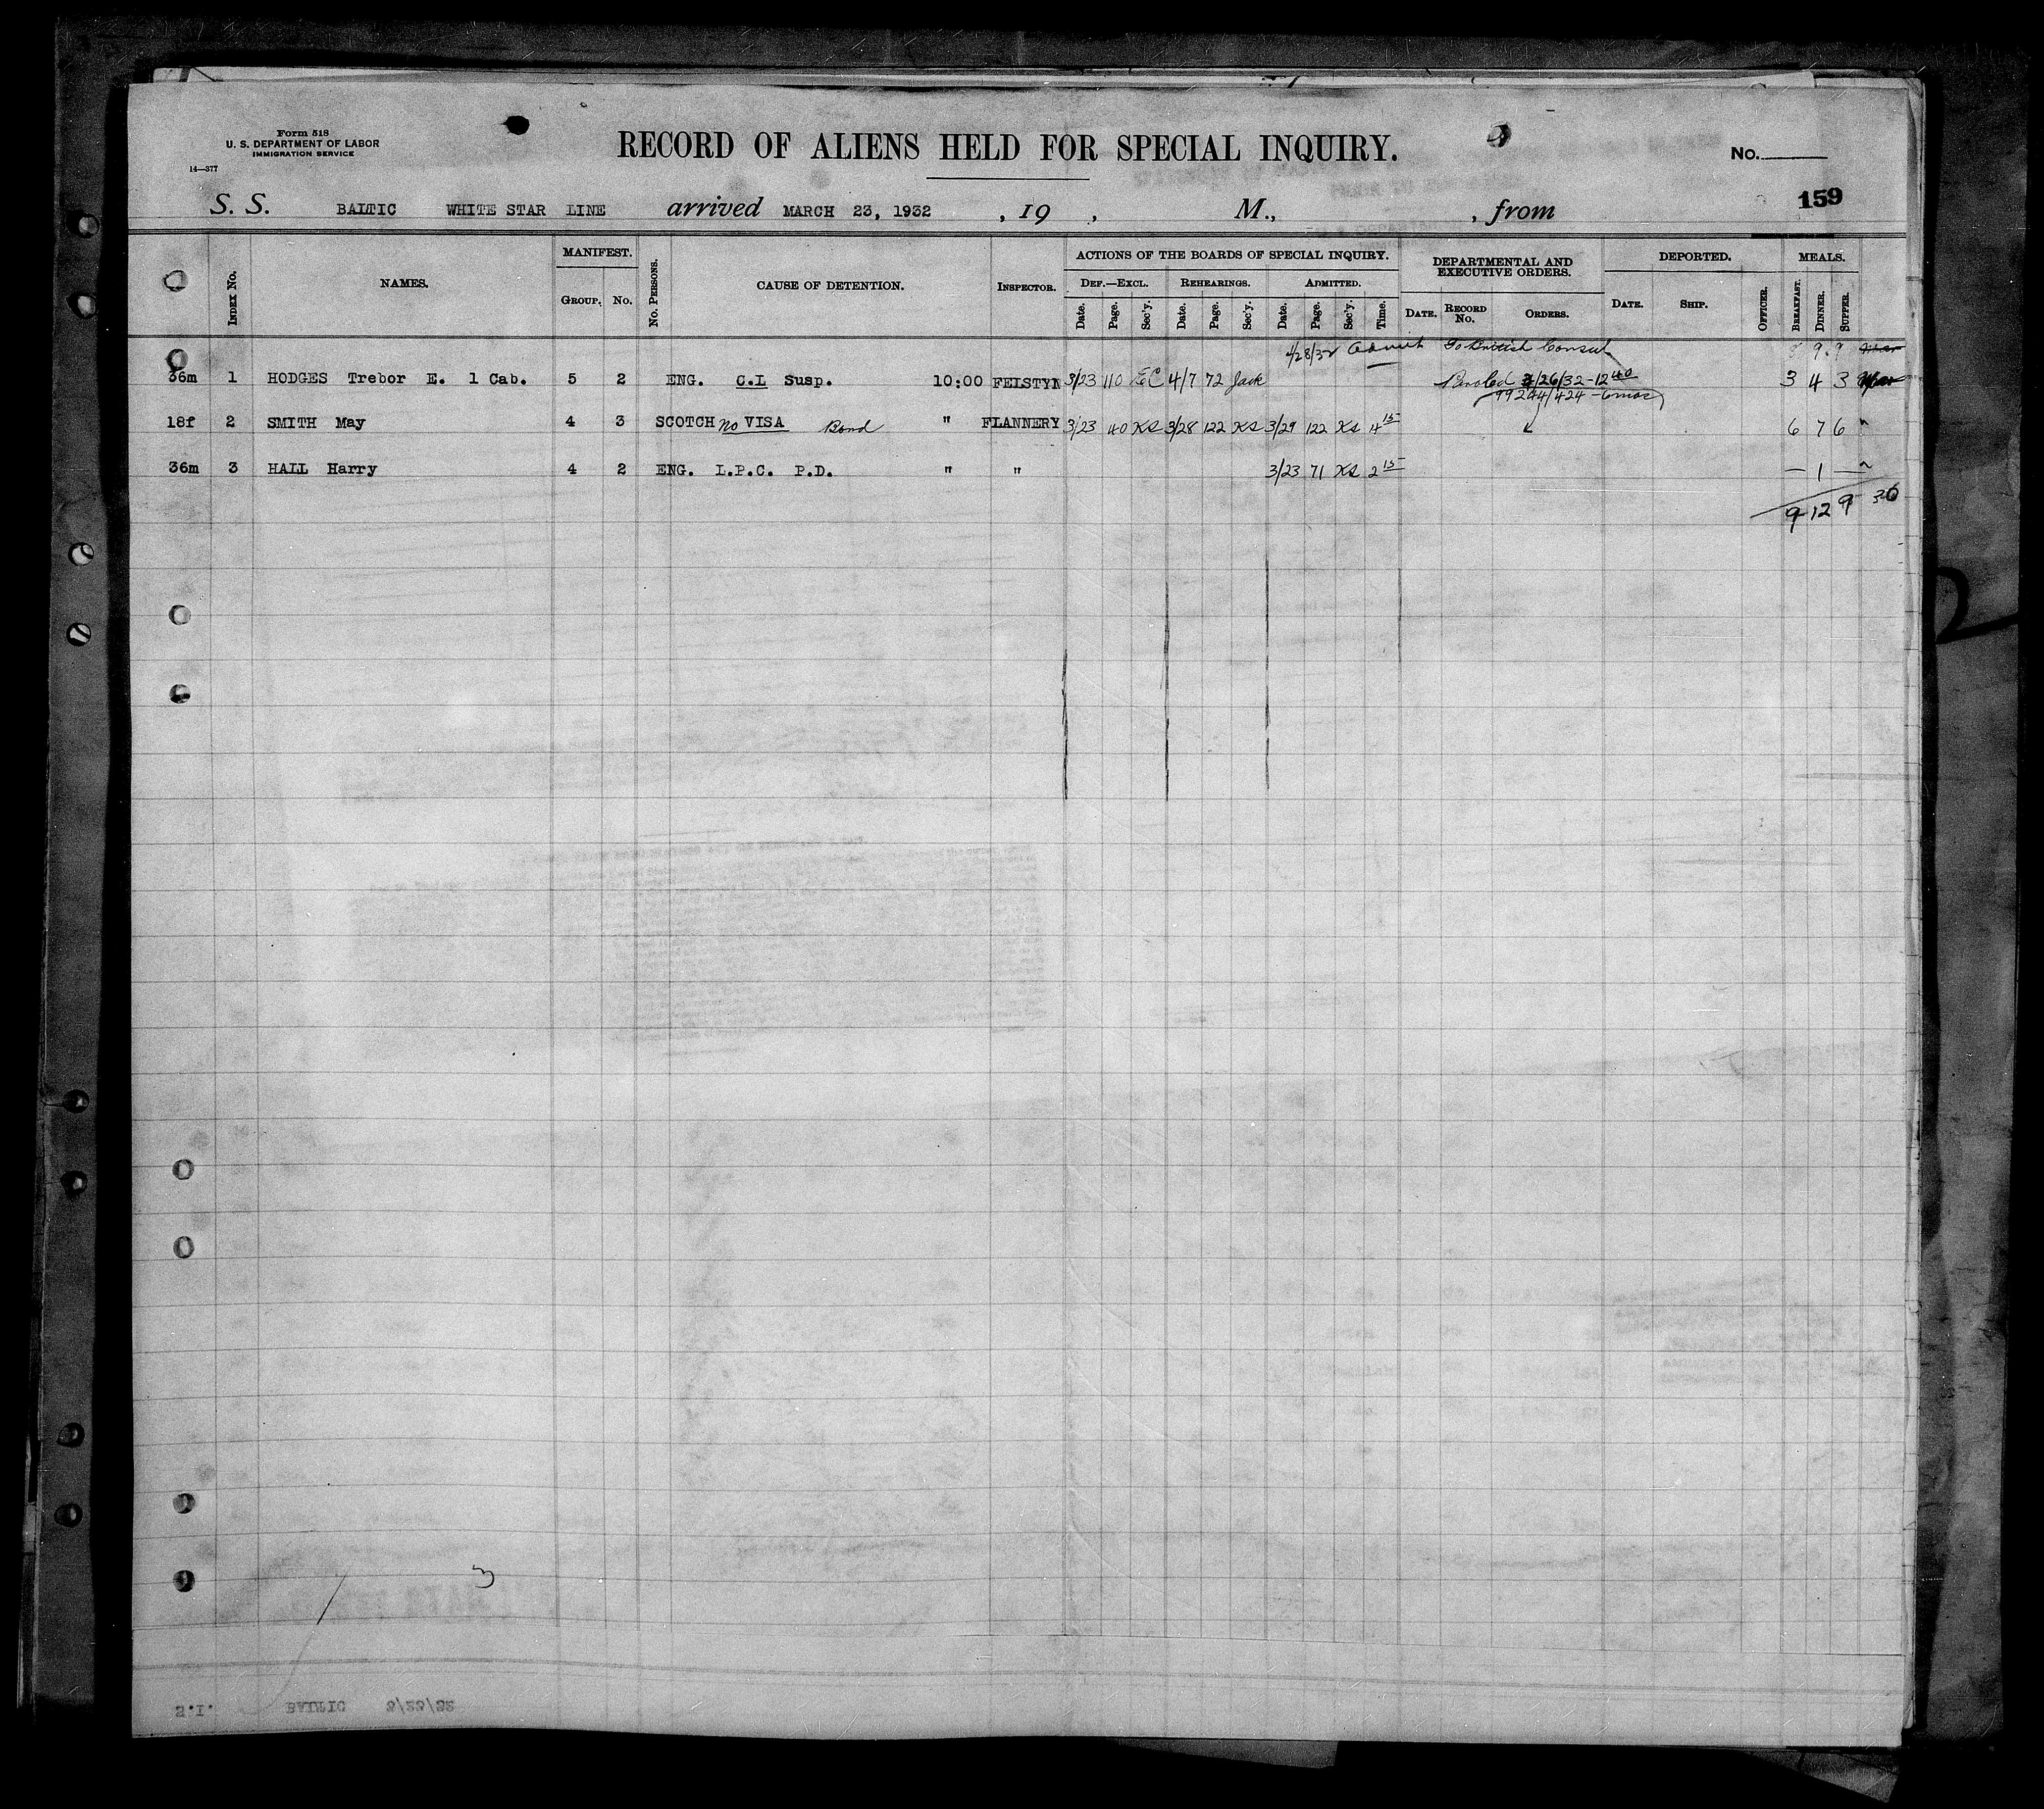 Form 518
U. S. DEPARTMENT OF LABOR
IMMIGRATION SERVICE
14—377
RECORD OF ALIENS HELD FOR SPECIAL INQUIRY.
No.
159
S. S. BALTIC WHITE STAR LINE arrived MARCH 23, 1932 , 19 , M., , from
INDEX No. NAMES. MANIFEST. GROUP. No. No. PERSONS. CAUSE OF DETENTION. INSPECTOR. ACTIONS OF THE BOARDS OF SPECIAL INQUIRY. DEPARTMENTAL AND EXECUTIVE ORDERS. DEPORTED. MEALS.
DEF.—EXCL. REHEARINGS. ADMITTED.
Date. Page. Sec'y. Date. Page. Sec'y. Date. Page. Sec'y. Time. DATE. RECORD No. ORDERS. DATE. SHIP. OFFICER. BREAKFAST. DINNER. SUPPER.
4/28/32 Admit To British Consul 9 9
36m 1 HODGES Trebor E. 1 Cab. 5 2 ENG. C.L Susp. 10:00 FEISTYN 3/23 110 EC 4/7 72 Jack Paroled 4/26/32-12 40 3 4 3
99244/424 - 6 mos
18f 2 SMITH May 4 3 SCOTCH no VISA Bond " FLANNERY 3/23 40 KS 3/28 122 KS 3/29 122 KS 4 15 6 7 6 "
36m 3 HALL Harry 4 2 ENG. L.P.C. P.D. " " 3/23 71 KS 2 15 — 1 — "
9 12 9 30
3
S.I. BALTIC 3/23/32